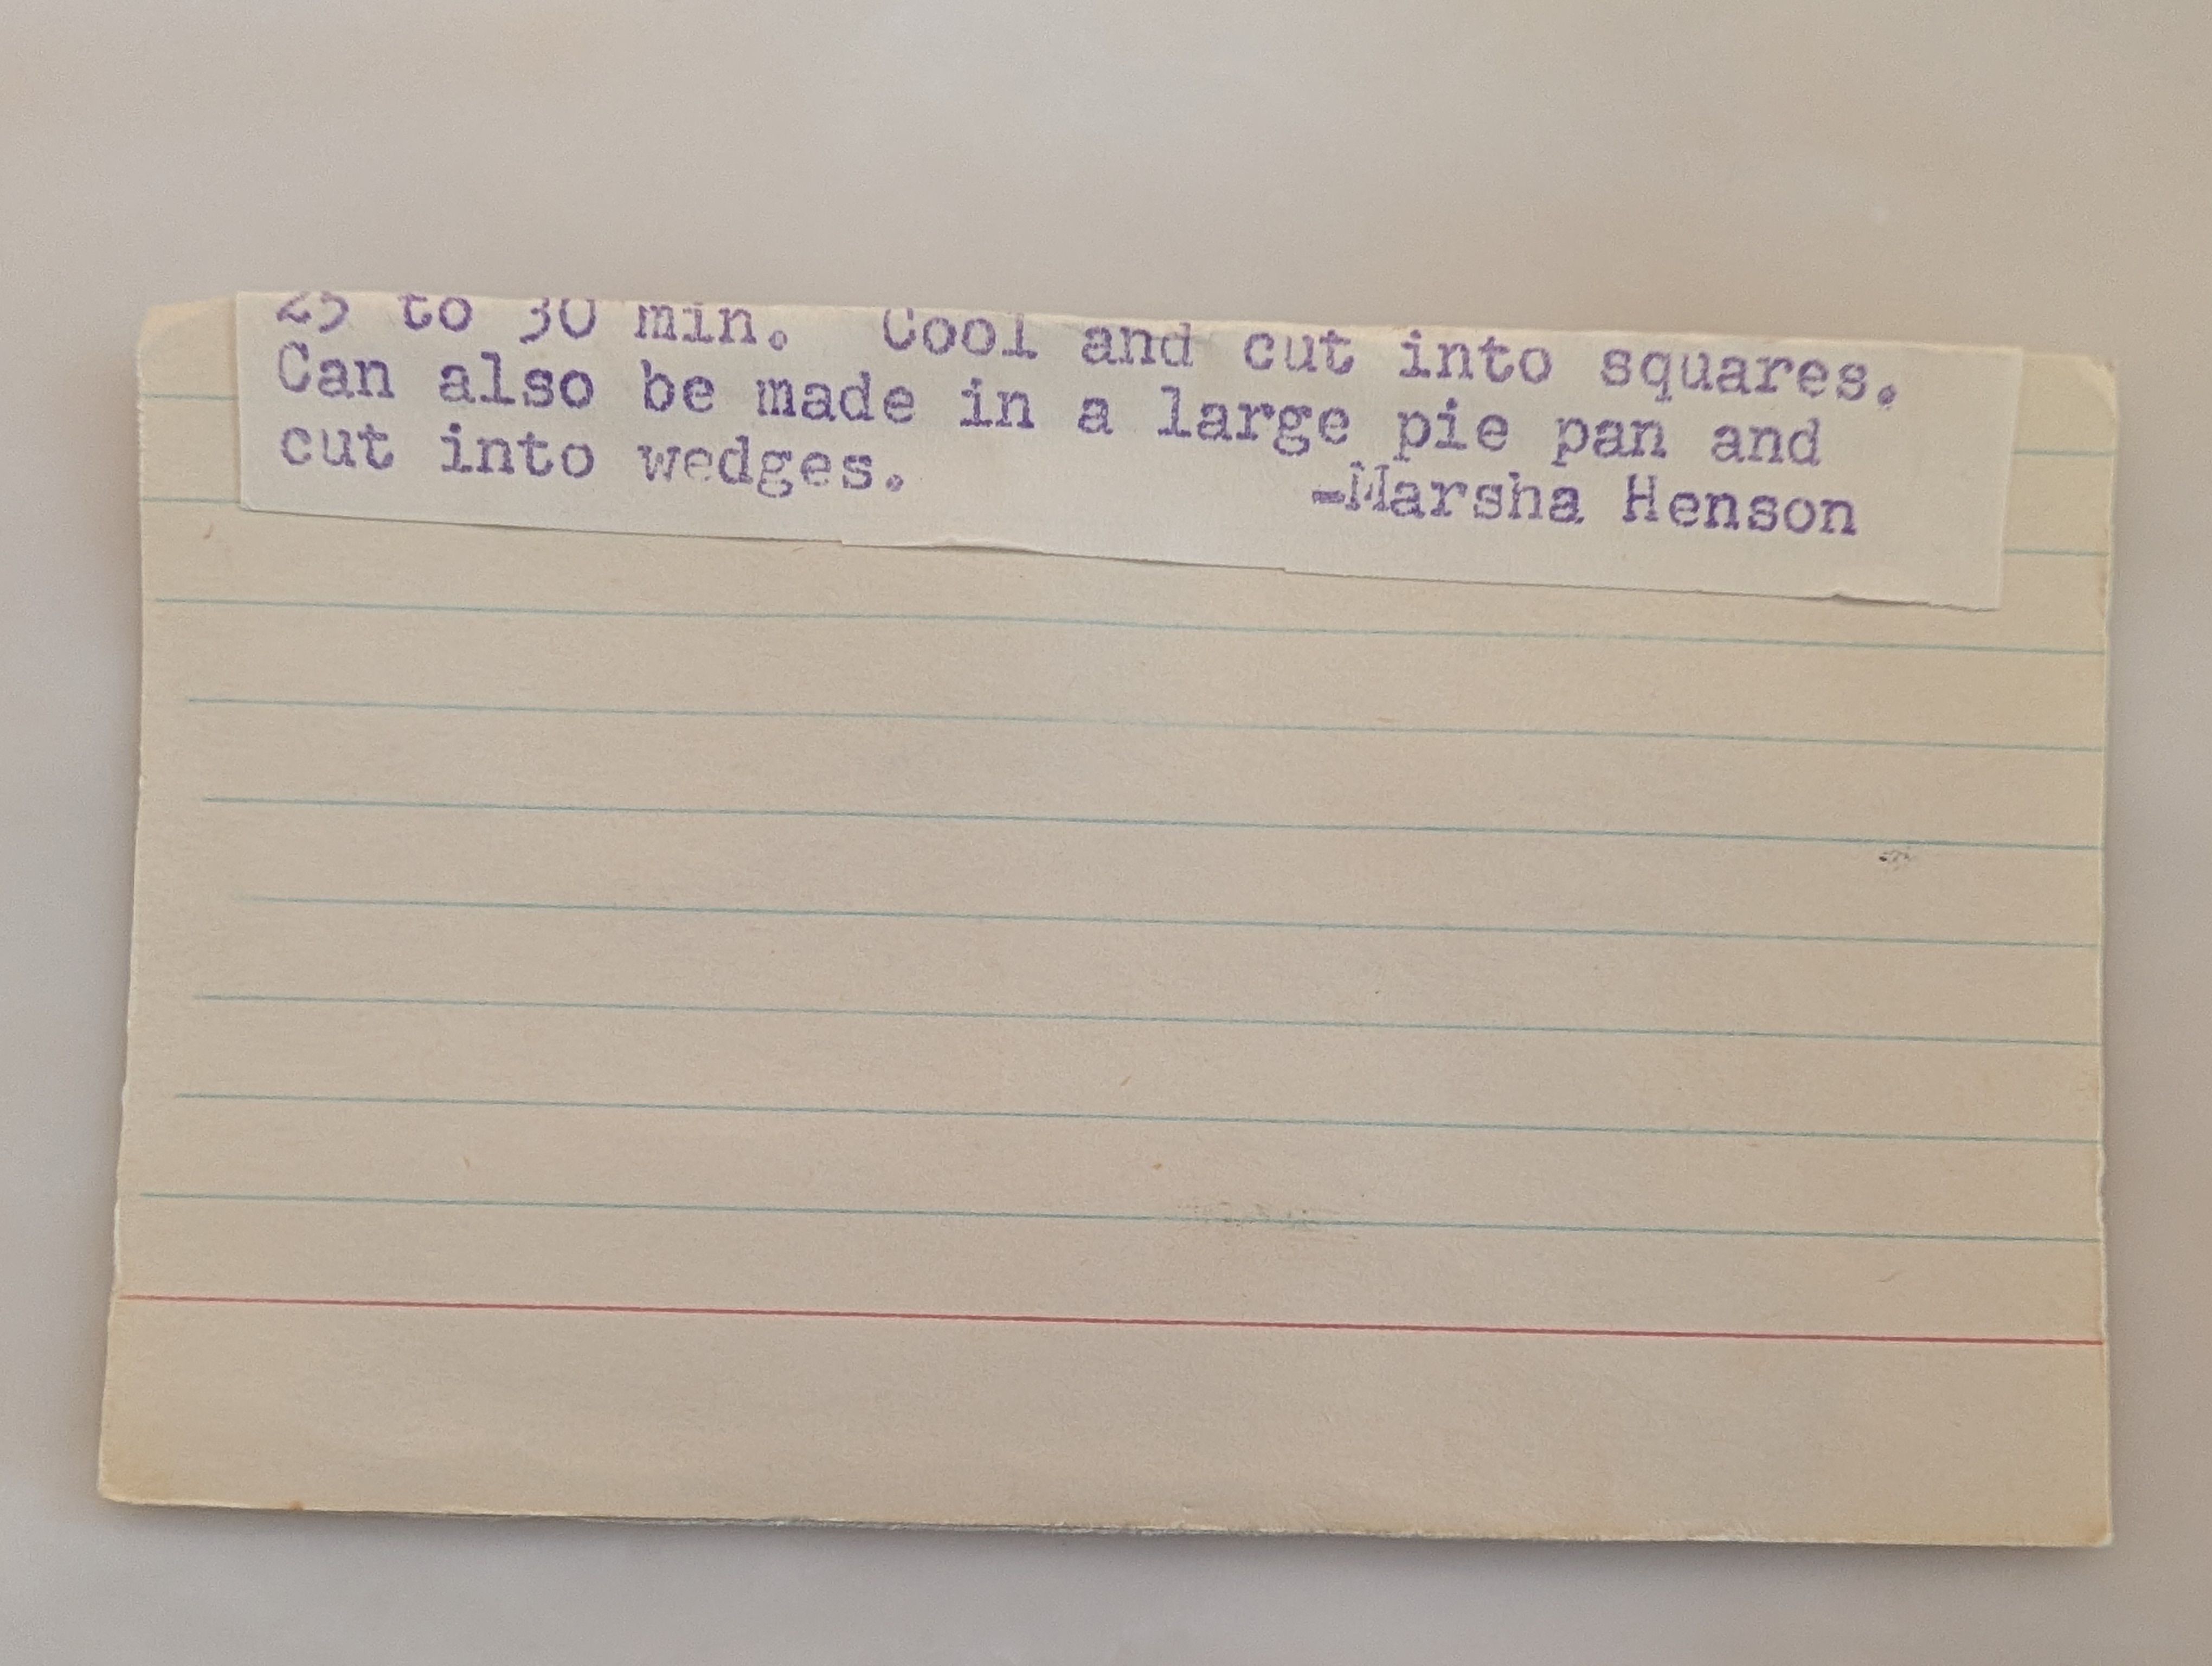 25 to 30 min.  Cool and cut into squares.
Can also be made in a large pie pan and
cut into wedges.
-Marsha Henson